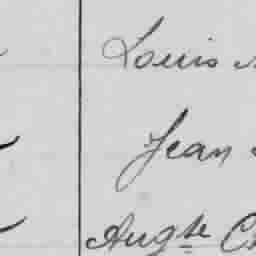 Louis
Jean
Augte